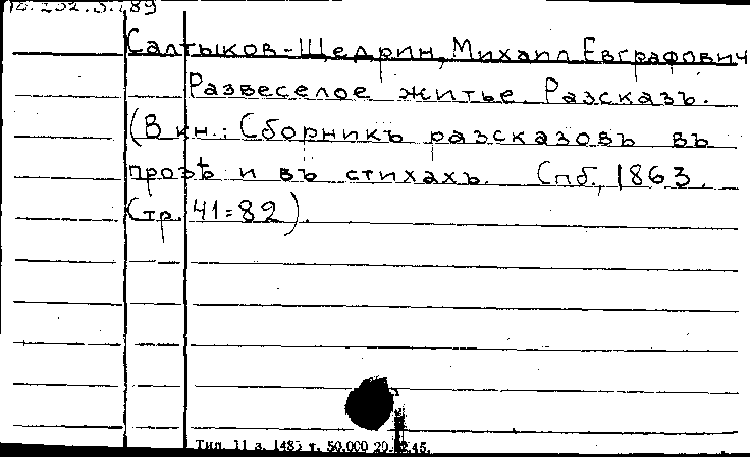 18.232.5.189
Салтыков-Щедрин, Михаил Евграфович
Развеселое житье. Разсказъ.
(В кн.: Сборникъ разсказовъ въ
прозѣ и въ стихахъ. Спб., 1863.
Стр. 41=82).
Тип. 11 з. 1483 т. 50.000 20. 45.